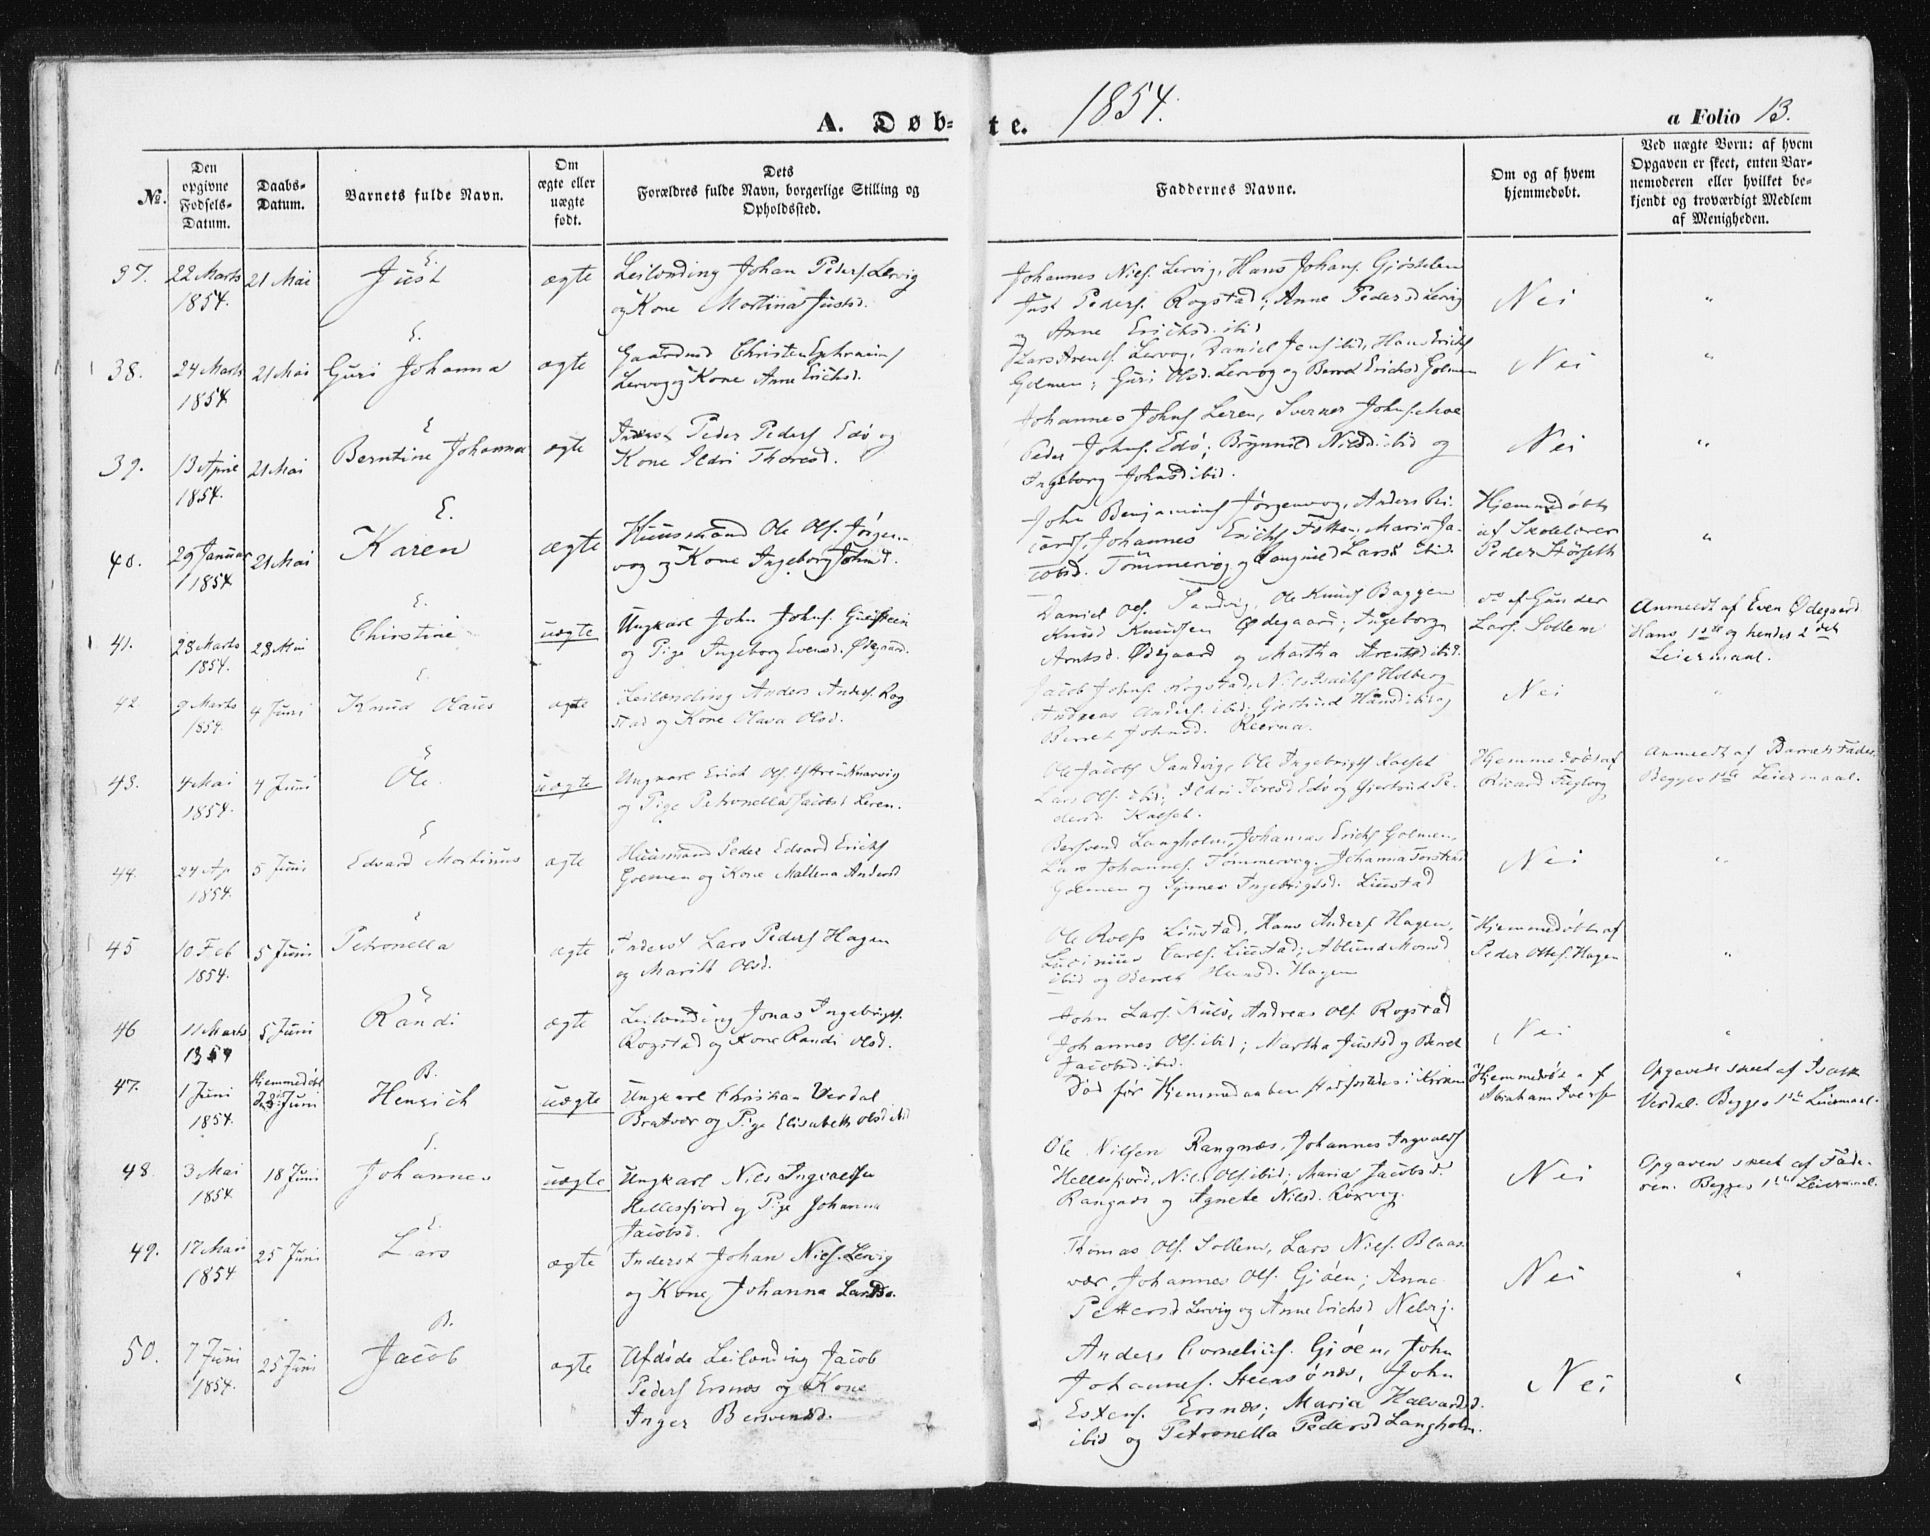 A. Døb-te. 1854.
a Folio 13.
№.
Den opgivne Fødsels-Datum.
Daabs-Datum.
Barnets fulde Navn.
Om ægte eller uægte født.
Dets Forældres fulde Navn, borgerlige Stilling og Opholdssted.
Faddernes Navne.
Om og af hvem hjemmedøbt.
Ved uægte Børn: af hvem Opgaven er skeet, enten Barnemoderen eller hvilket bekjendt og troværdigt Medlem af Menigheden.
37. 22 Marts 1854. 21 Mai Just ægte
Leilending Johan Peders. Lervig
og Kone Martina Justsd.
Johannes Niels. Lervig, Hans Johans. Gjøstelen
Just Peders. Rogstad; Anne Pedersd Lervig
og Anne Erichsd. ibid
Nei "
38. 24 Marts 1854 21 Mai Guri Johanna ægte
Gaardmd Christen Ephraims
Lervog og Kone Anne Erichsd.
Lars Arents. Lervog, Daniel Jens ibid, Hans Erichs
Golmen; Guri Olsd. Lervog og Beret Erichsd Golmen
Nei "
39. 13 April 1854. 21 Mai Berntine Johanna ægte
Inderst Peder Peders Edø og
Kone Ildri Thoresd.
Johannes Johns Leren, Sverner Johns.
Peder Johns. Edø; Brynnild Nilsd ibid og
Ingeborg Johnsd ibid.
Nei "
40. 29 Januar 1854 21 Mai Karen ægte
Huusmand Ole Ols. Jørgen-
vog og Kone Ingeborg Johnsd.
John Benjamins Jørgenvog, Anders Ri-
cards, Johannes Erichs Maria Ja-
cobsd. Tømmervog og Larsd ibid.
Hjemmedøbt
af Skolelærer
Peder Hørseth
"
41. 28 Marts 1854. 28 Mai Chirstine uægte
Ungkarl John Johns.
og Pige Ingeborg Evensd. Ødegaard.
Daniel Ols. Sandvig, Ole Knuds Baggen
Knud Knudsen Ødegaard; Ingeborg
Arntsd. Ødegaard og Martha Arentsd ibid.
do af Gunder
Lars. Sollem
Anmeldt af Even Ødegaard
Hans 1ste og hendes 2det
Leiermaal.
42 9 Marts 1854. 4 Juni Knud Olaus ægte
Leilending Anders Anders. Rog
stad og Kone Olava Olsd.
Jacob Johns. Rogstad, Nils Holberg
Andreas Anders. ibid; Gjertrud Hansd ibid og
Berret Johnsd.
Nei "
43. 4 Mai 1854. 4 Juni Ole uægte
Ungkarl Erich Ols.
og Pige Petronella Jacobsd Leren.
Ole Jacobs Sandvig, Ole Ingebrigts Kalset
Lars Ols. ibid; Ildri Toresd Edø og Gjertrud Pe-
dersd. Kalset.
Hjemmedøbt af
Ricard Fugleog
Anmeldt af Barnets Fader.
Begges 1ste Leiermaal.
44. 24 Ap 1854. 5 Juni Edvard Martinus ægte
Huusmand Peder Edvard Erichs
Golmen og Kone Mallena Andersd
Bersvend Langholm, Johannes Erichs Golmen,
Lars Johannes. Tømmervog; Johanna Torstensd
Golmen og Synnev Ingebrigtsd. Liustad
Nei "
45 10 Feb 1854. 5 Juni Petronella ægte
Inderst Lars Peders Hagen
og Maritt Olsd.
Ole Rolfs Liustad, Hans Anders Hagen,
Carls. Liustad; Ablund Monsd
ibid og Berret Hansd. Hagen
Hjemmedøbt af
Peder Ottes. Hagen
"
46 11 Marts 1854 5 Juni Randi ægte
Leilending Jonas Ingebrigts.
Rogstad og Kone Randi Olsd.
John Lars Kulø, Andreas Ols Rogstad
Johannes Ols. ibid; Martha Justsd og Berret
Jacobsd ibid.
Nei "
47. 1 Juni 1854. Hjemmedøbt Juni Henrich uægte
Ungkarl Christian Verdal
Bratvær og Pige Elisabeth Olsd ibid
Død før Hjemmedaaben stadfæstedes i Kirken
Hjemmedøbt af
Abraham Ivers.
Opgaven skeet af Isach
Verdal. Begges 1ste Leiermaal.
48. 3 Mai 1854 18 Juni Johannes uægte
Ungkarl Nils Ingvaldsen
Hellesfjord og Pige Johanna
Jacobsd.
Ole Nilsen Rangnæs, Johannes Ingvalds
Hellesfjord, Niels Ols ibid; Maria Jacobsd
Rangnæs og Agnete Nilsd. Roxvog.
Nei
Opgaven skeet af Fade-
ren. Begges 1ste Leiermaal.
49. 17 Mai 1854 25 Juni Lars ægte
Inderst Johan Niels. Lervig
og Kone Johanna Larsd.
Thomas Ols. Sollem, Lars Niels. Blaas
vær, Johannes Ols. Gjøen; Anne
Pettersd Lervig og Anne Erichsd Nelvig.
Nei "
50. 7 Juni 1854. 25 Juni Jacob ægte
Afdøde Leilending Jacob
Peders Ersnæs og Kone
Inger Bersvendsd.
Anders Cornelius. Gjøen, John
Johannes. Steensønæs, John
Estens. Ersnæs; Maria Halvardsd.
ibid og Petronella Pedersd Langholm.
Nei "